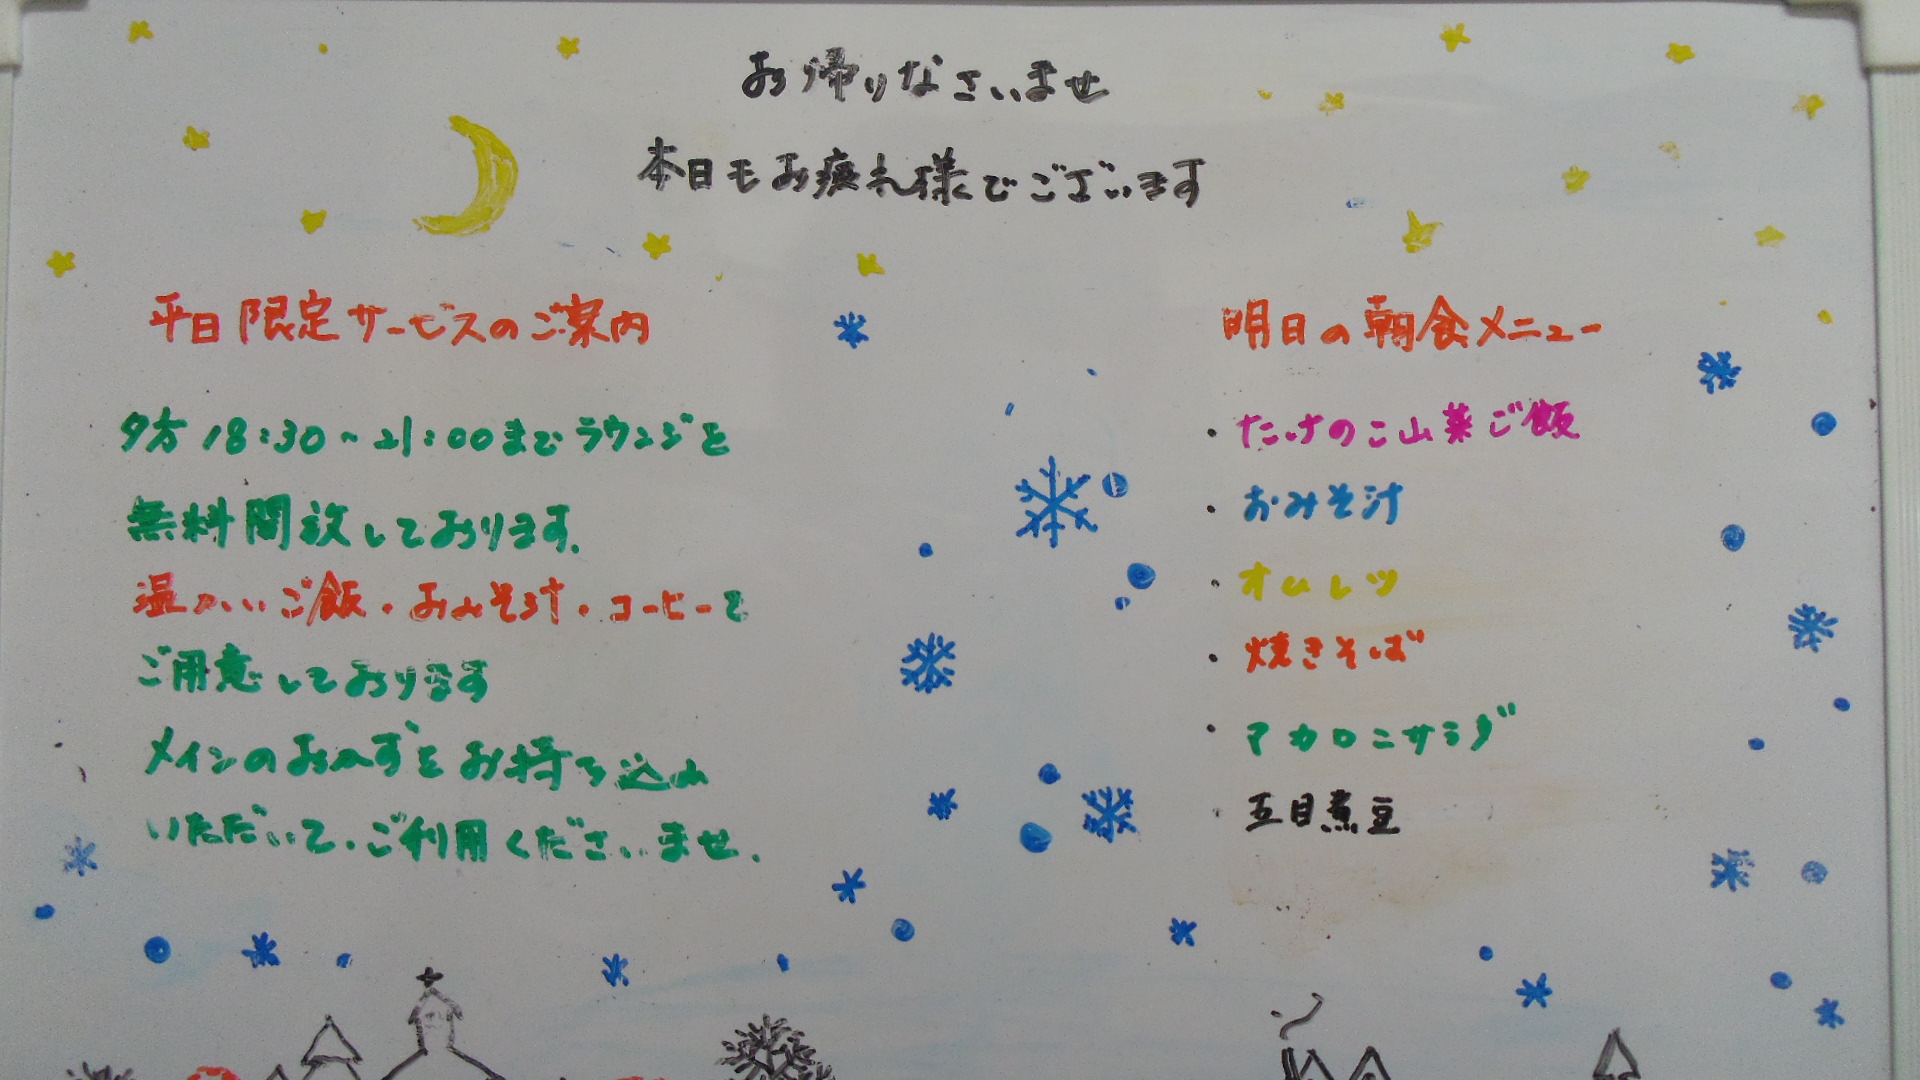 お帰りなさいませ
本日もお疲れ様でございます
平日限定サービスのご案内
夕方18:30~21:00までラウンジを
無料開放しております。
温かいご飯・おみそ汁・コーヒーを
ご用意しております
メインのおかずをお持ち込み
いただいて、ご利用くださいませ。
明日の朝食メニュー
・たけのこ山菜ご飯
・おみそ汁
・オムレツ
・焼きそば
・マカロニサラダ
・五目煮豆